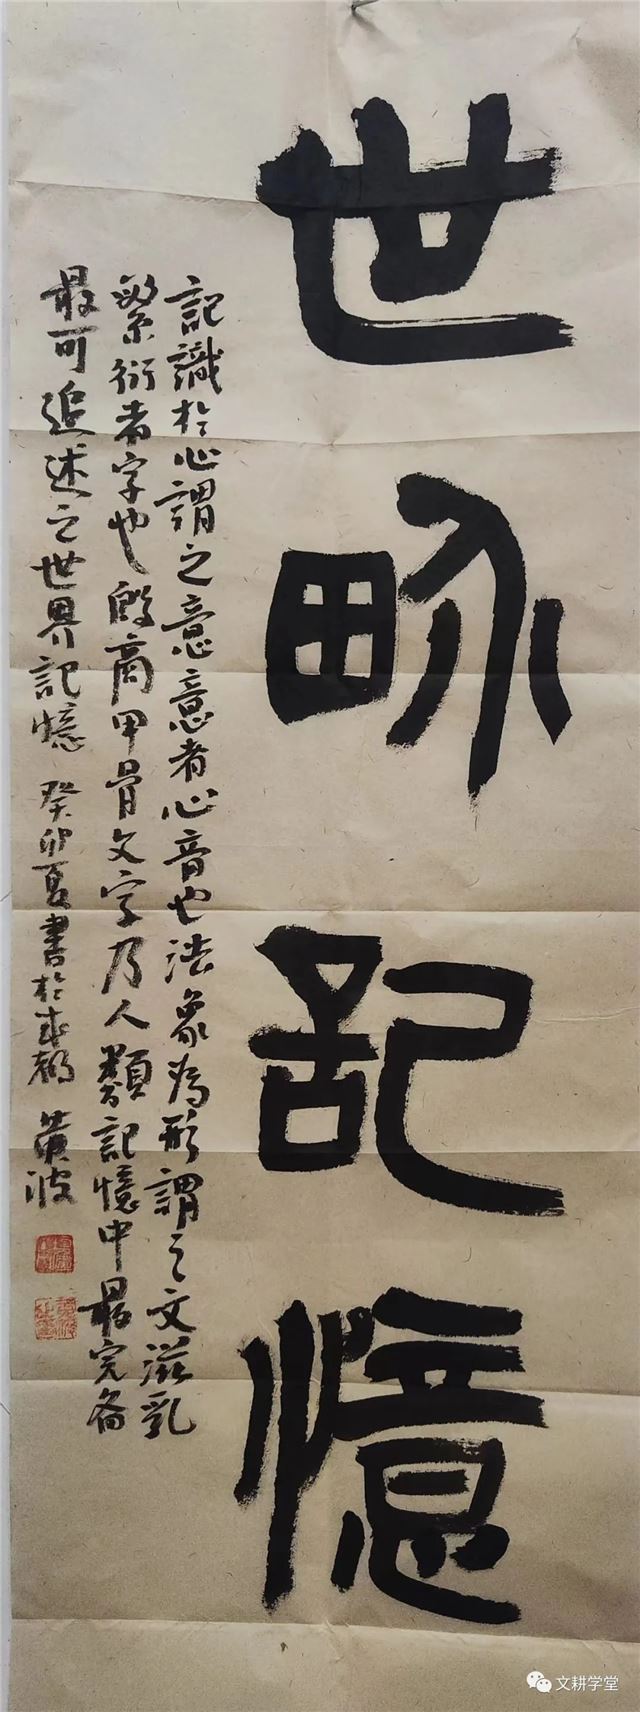 世界記憶
記識於心謂之意意者心音也法象為形謂之文滋乳
繁衍者字也殷商甲骨文字乃人類記憶中最完備
最可追述之世界記憶 癸卯夏書於成都 黄波
文耕学堂